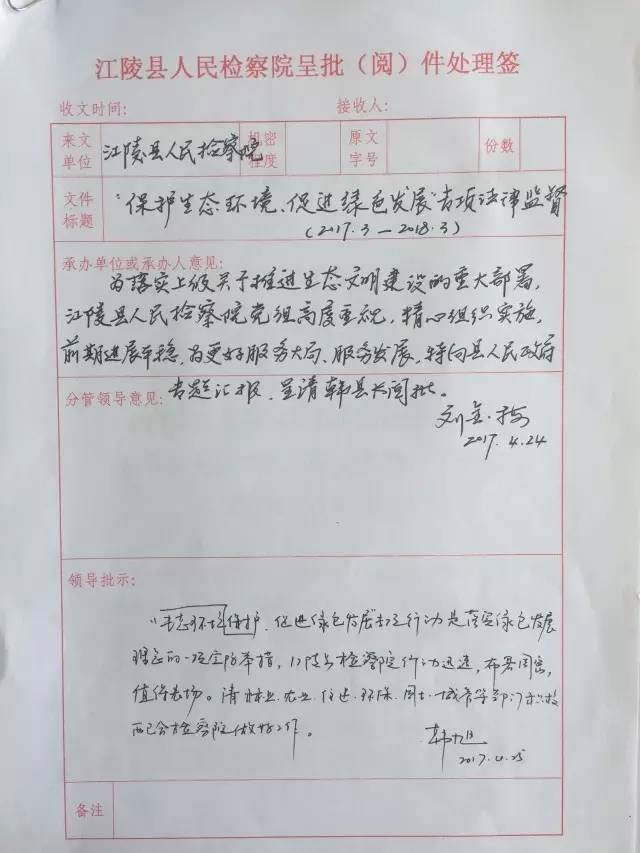 江陵县人民检察院呈批（阅）件处理签
收文时间： 接收人：
来文单位 江陵县人民检察院 机密程度 原文字号 份数
文件标题 “保护生态环境、促进绿色发展”专项法律监督
（2017.3—2018.3）
承办单位或承办人意见：
为落实上级关于推进生态文明建设的重大部署，
江陵县人民检察院党组高度重视，精心组织实施，
前期进展平稳，为更好服务大局、服务发展，特向县人民政府
专题汇报，呈请韩县长阅批。
分管领导意见：
2017.4.24
领导批示：
“生态环境保护、促进绿色发展”专项行动是落实绿色发展
理念的一项实际举措，江陵县检察院行动迅速，布署周密，
值得表扬。请林业、农业、住建、环保、国土、城管等部门积极
配合检察院做好工作。
韩旭
2017.4.25
备注